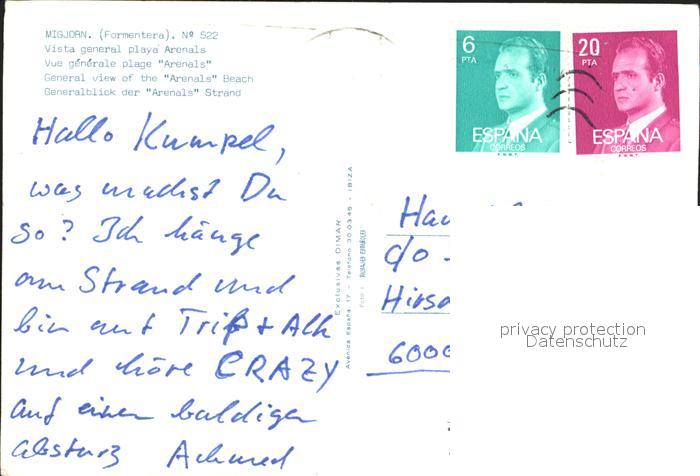 MIGJORN. (Formentera). Nº 522
Vista general playa Arenals
Vue générale plage "Arenals"
General view of the "Arenals" Beach
Generalblick der "Arenals" Strand
6
PTA
ESPAÑA
CORREOS
F.N.M.T.
20
PTA
ESPAÑA
CORREOS
F.N.M.T.
Hallo Kumpel,
was machst Du
so? Ich hänge
am Strand und
bin auf Trip + Alk
und höre CRAZY
auf einen baldigen
absturz Achmed
Exclusivas DIMAR
Avenida España, 17 - Teléfono 30 03 45 - IBIZA
c/o
6000
privacy protection
Datenschutz